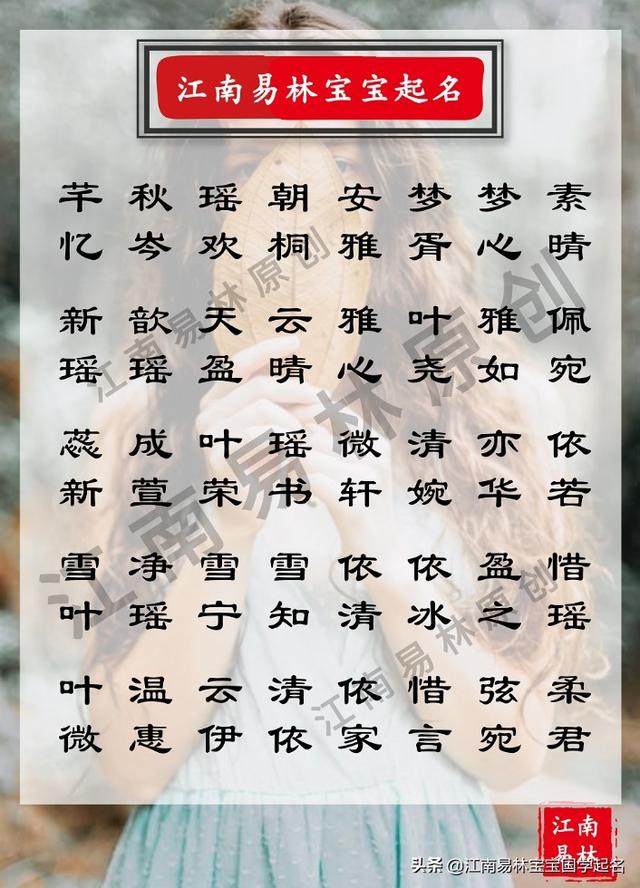 江南易林宝宝起名
芊 秋 瑶 朝 安 梦 梦 素
忆 岑 欢 桐 雅 胥 心 晴
新 歆 天 云 雅 叶 雅 佩
瑶 瑶 盈 晴 心 尧 如 宛
蕊 成 叶 瑶 微 清 亦 依
新 萱 荣 书 轩 婉 华 若
雪 净 雪 雪 依 依 盈 惜
叶 瑶 宁 知 清 冰 之 瑶
叶 温 云 清 依 惜 弦 柔
微 惠 伊 依 家 言 宛 君
江南易林原创
江南易林原创
江南易林原创
江南
易林
头条 @江南易林宝宝国学起名